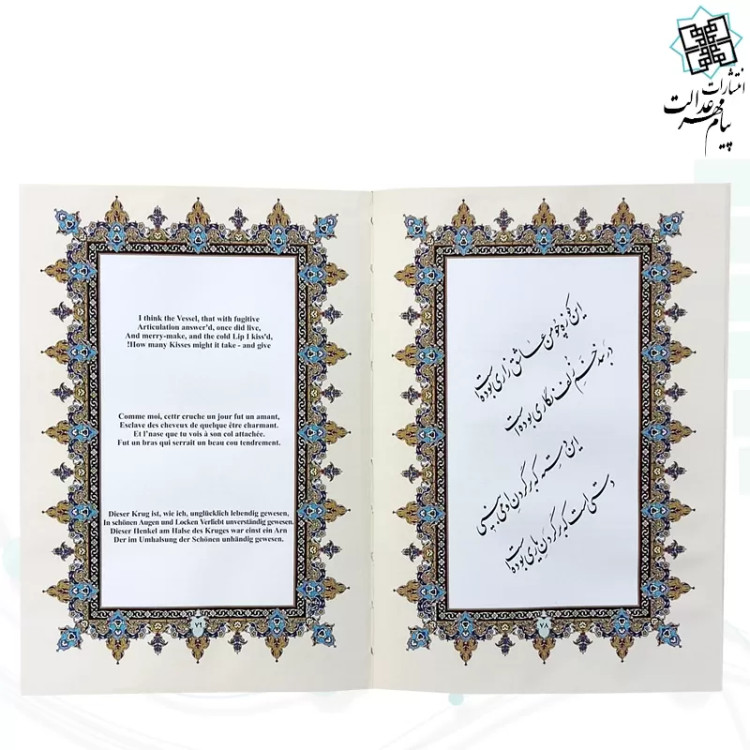 انتشارات
پیام مهر عدالت
I think the Vessel, that with fugitive
Articulation answer'd, once did live,
And merry-make, and the cold Lip I kiss'd,
!How many Kisses might it take - and give
Comme moi, cettr cruche un jour fut un amant,
Esclave des cheveux de quelque être charmant.
Et l'nase que tu vois à son col attachée.
Fut un bras qui serrait un beau cou tendrement.
Dieser Krug ist, wie ich, unglücklich lebendig gewesen,
In schönen Augen und Locken Verliebt unverständig gewesen.
Dieser Henkel am Halse des Kruges war einst ein Arn
Der im Umhalsung der Schönen unhändig gewesen.
۷۱
این کوزه چو من عاشق زاری بوده است
در بند خم زلف نگاری بوده است
این دسته که بر گردن او می بینی
دستی است که بر گردن یاری بوده است